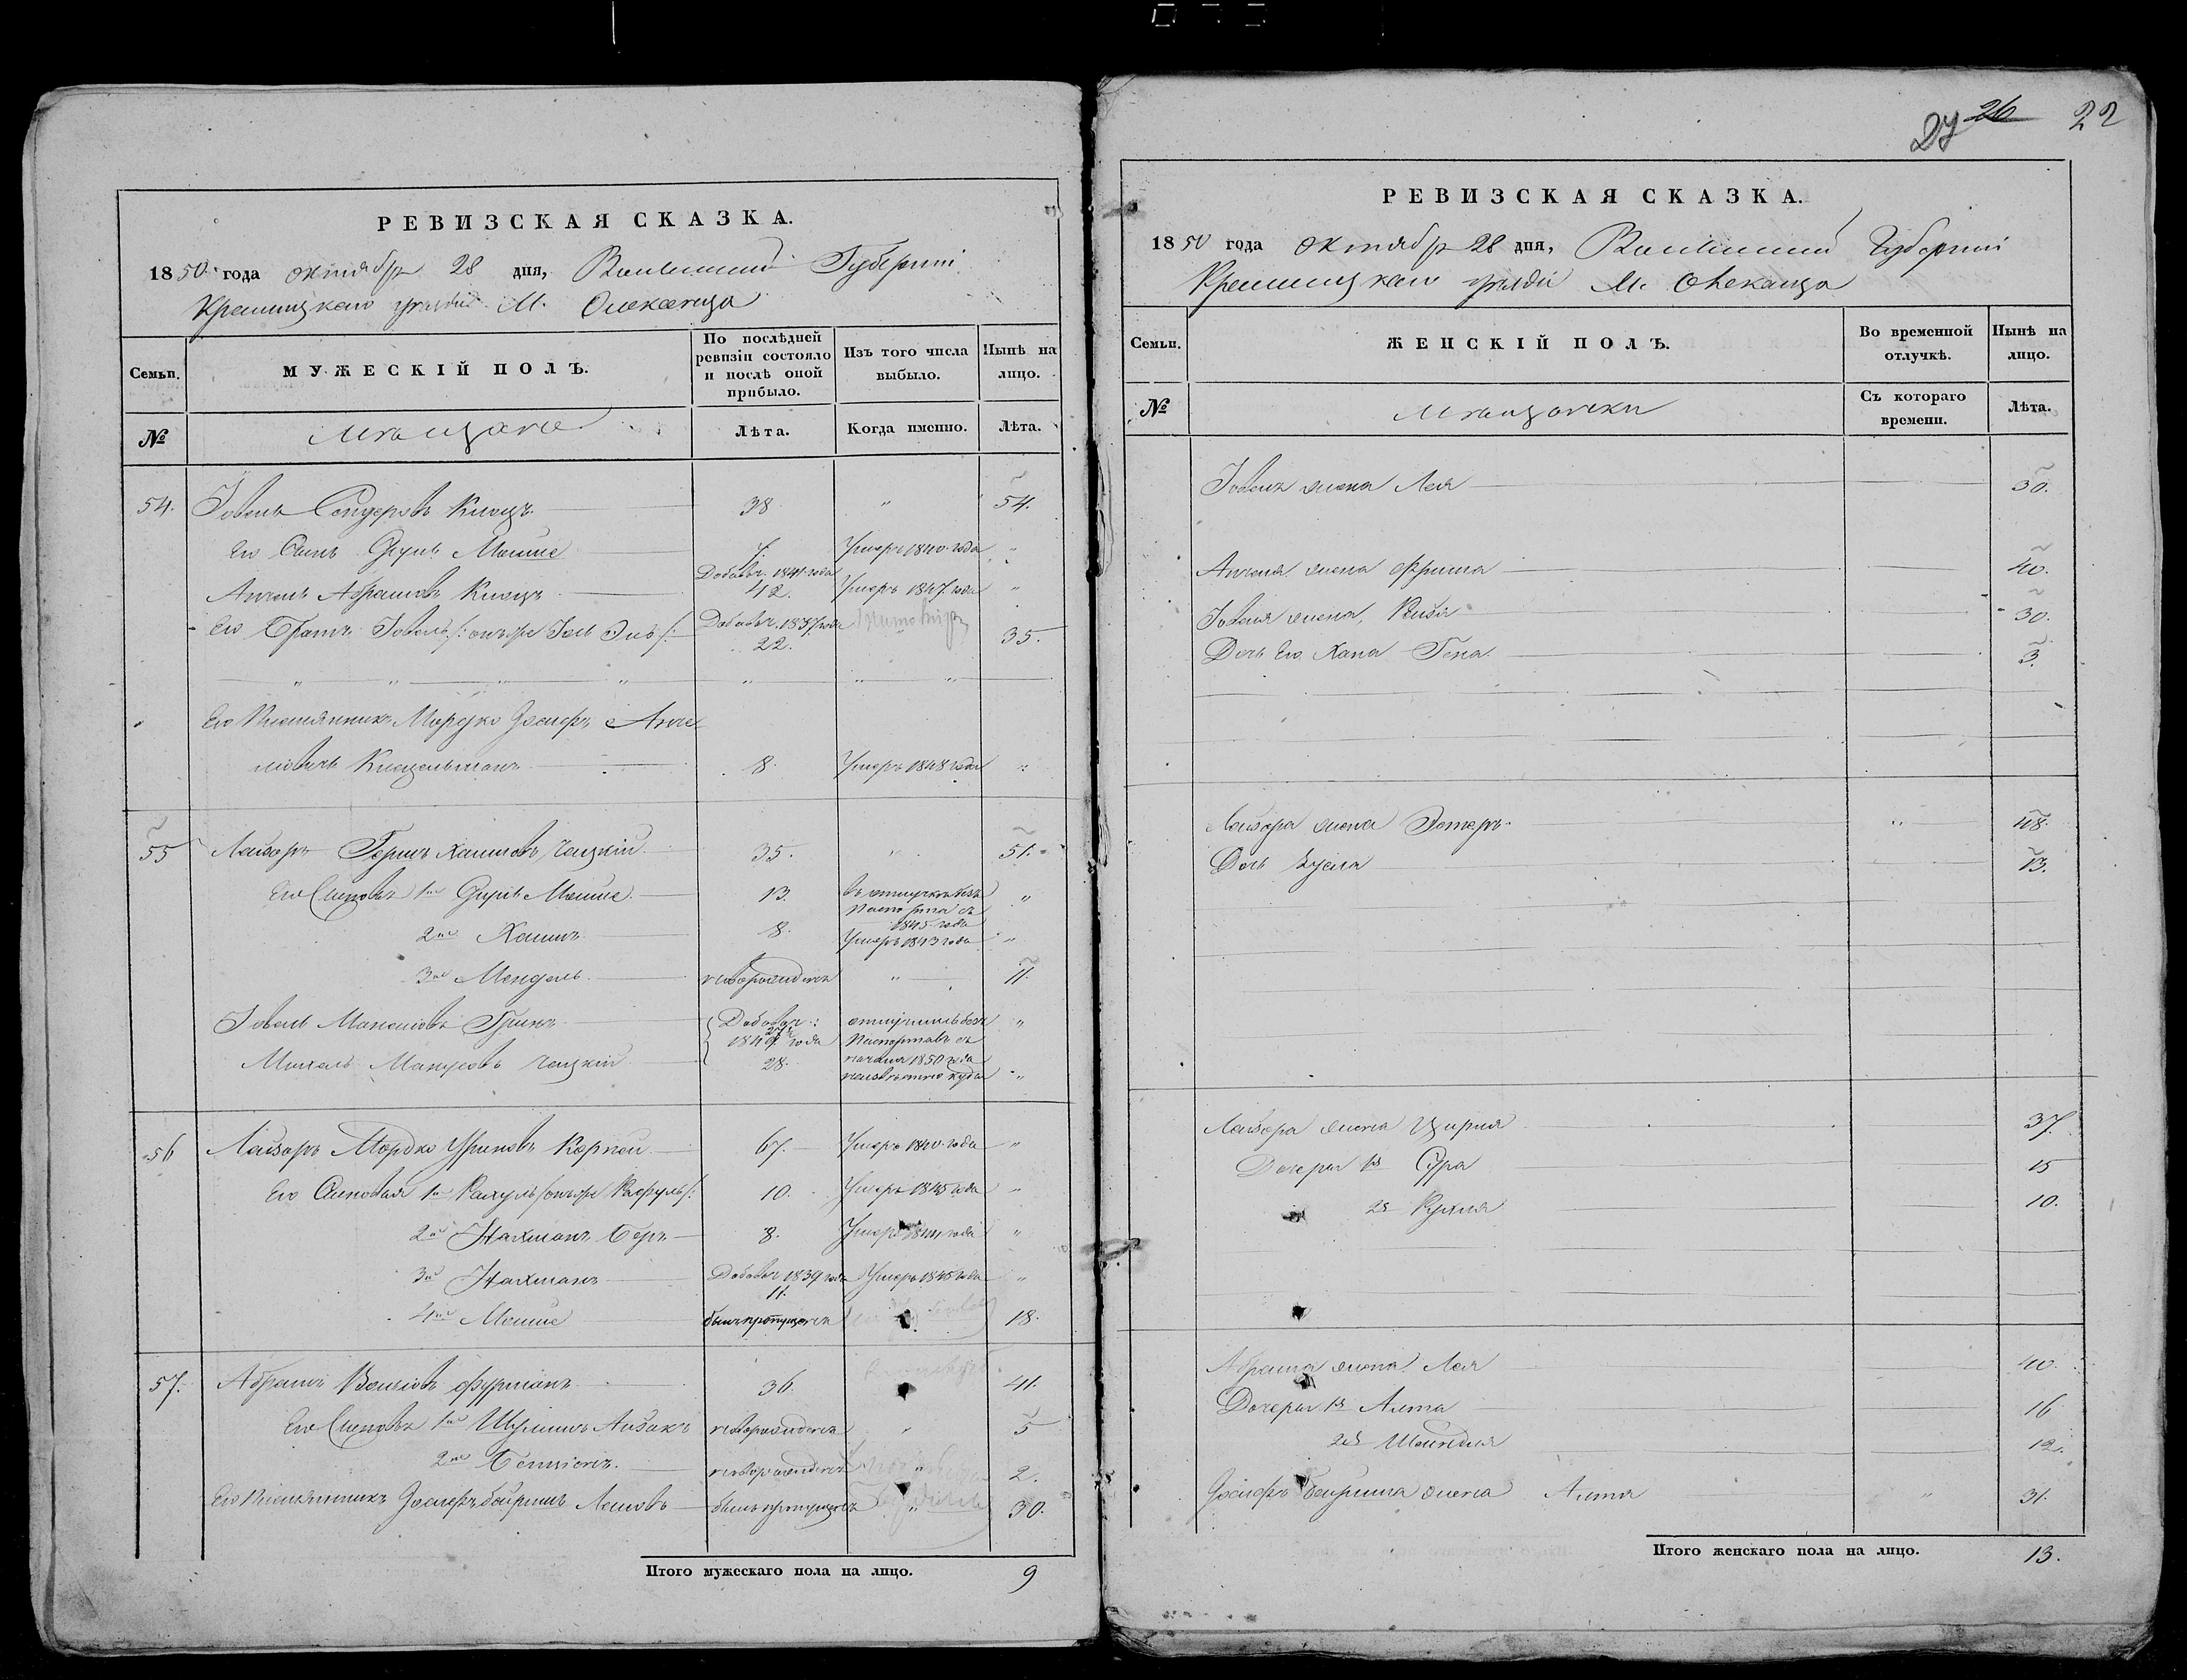 27 26 22
РЕВИЗСКАЯ СКАЗКА.
1850 года октября 28 дня, Волынской Губернии
Кременецкаго уезда М. Олексенца
Семьи.
МУЖЕСКІЙ ПОЛЪ.
По послѣдней ревизіи состояло и послѣ оной прибыло.
Изъ того числа выбыло.
Нынѣ на лицо.
№
Мещане
Лѣта.
Когда именно.
Лѣта.
54. Іовель Сендеровъ Клоцъ 38 " 54.
Его Сынъ Сруль Мошке 7. Умеръ 1840 года "
Анчель Абрамовъ Клоцъ Добавоч. 1841 года 42. Умеръ 1847 года "
Его Братъ Іовель /: онъже Іось :/ Добавоч. 1837 года 22. 35.
Его Племянникъ Мордко Іосифъ Анче
ловичъ 8. Умеръ 1848 года "
55 Лейзоръ Гершъ Хаимовъ 35. " 51.
Его Сыновья 1й Сруль Мошке 13. въ отлучке безъ паспорта съ 1845 года "
2й Хаимъ 8. Умеръ 1843 года "
3й Мендель новорожденъ " 11.
Іовель Гринъ Добавоч. 1849 года 27 отлучились безъ "
Михель 28. паспортовъ съ начала 1850 года неизвестно куда "
56 Лейзоръ Мордко 67. Умеръ 1840 года "
Его Сыновья 1й Рахуль /: онъже Рафуль :/ 10. Умеръ 1845 года "
2й Нахманъ Беръ 8. Умеръ 1841 года "
3й Нахманъ Добавоч. 1839 года 11. Умеръ 1845 года "
4й Мошке былъ пропущенъ 18.
57. Абрамъ Волковъ Фурманъ 36. 41.
Его Сыновья 1й Шулимъ Айзикъ новорожденъ " 5
2й Бенционъ новорожденъ " 2.
Его Племянникъ Іосифъ Бейришъ Лейбовъ былъ пропущенъ " 30.
Итого мужескаго пола на лицо. 9
РЕВИЗСКАЯ СКАЗКА.
1850 года октября 28 дня, Волынской Губернии
Кременецкаго уезда М. Олексенца
Семьи.
ЖЕНСКІЙ ПОЛЪ.
Во временной отлучкѣ.
Нынѣ на лицо.
№
Мещанки
Съ котораго времени.
Лѣта.
Іовеля жена Лея 50.
Анчеля жена Фрима 40.
Іовеля жена 30.
Дочь Его Хана Гена 3.
Лейзора жена Эстеръ " 48.
Дочь 13.
Лейзора жена Цирля 37.
Дочери 1я Сура 15
2я Рухля 10.
Абрама жена Лея 40.
Дочери 1я Алта 16
2я Шейндля 12.
Іосифъ Бейриша жена Алта " 31.
Итого женскаго пола на лицо. 13.